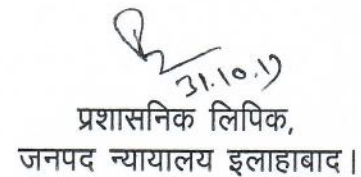 31.10.17
प्रशासनिक लिपिक,
जनपद न्यायालय इलाहाबाद।